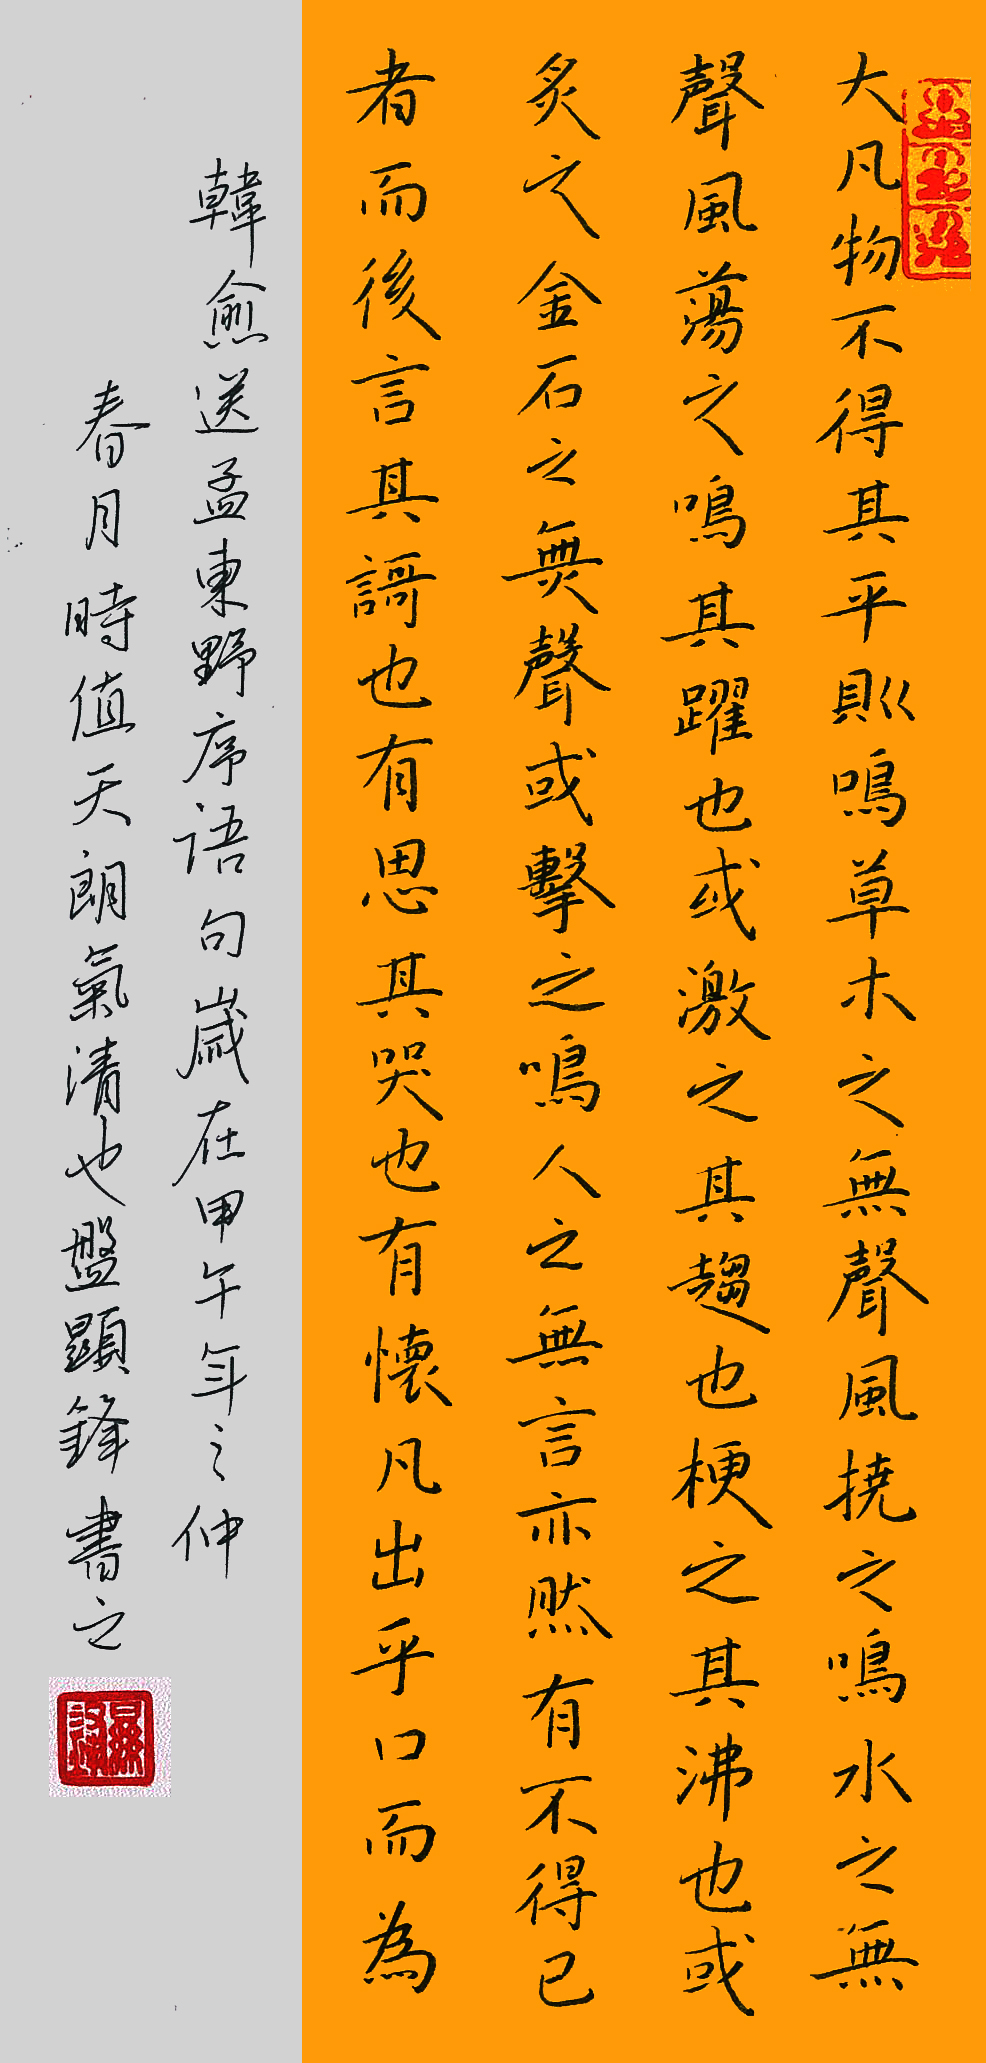 大凡物不得其平則鳴草木之無聲風撓之鳴水之無
聲風蕩之鳴其躍也或激之其趨也梗之其沸也或
炙之金石之無聲或擊之鳴人之無言亦然有不得已
者而後言其謌也有思其哭也有懷凡出乎口而為
韓愈送孟東野序语句歲在甲午年之仲
春月時值天朗氣清也盤顯鋒書之